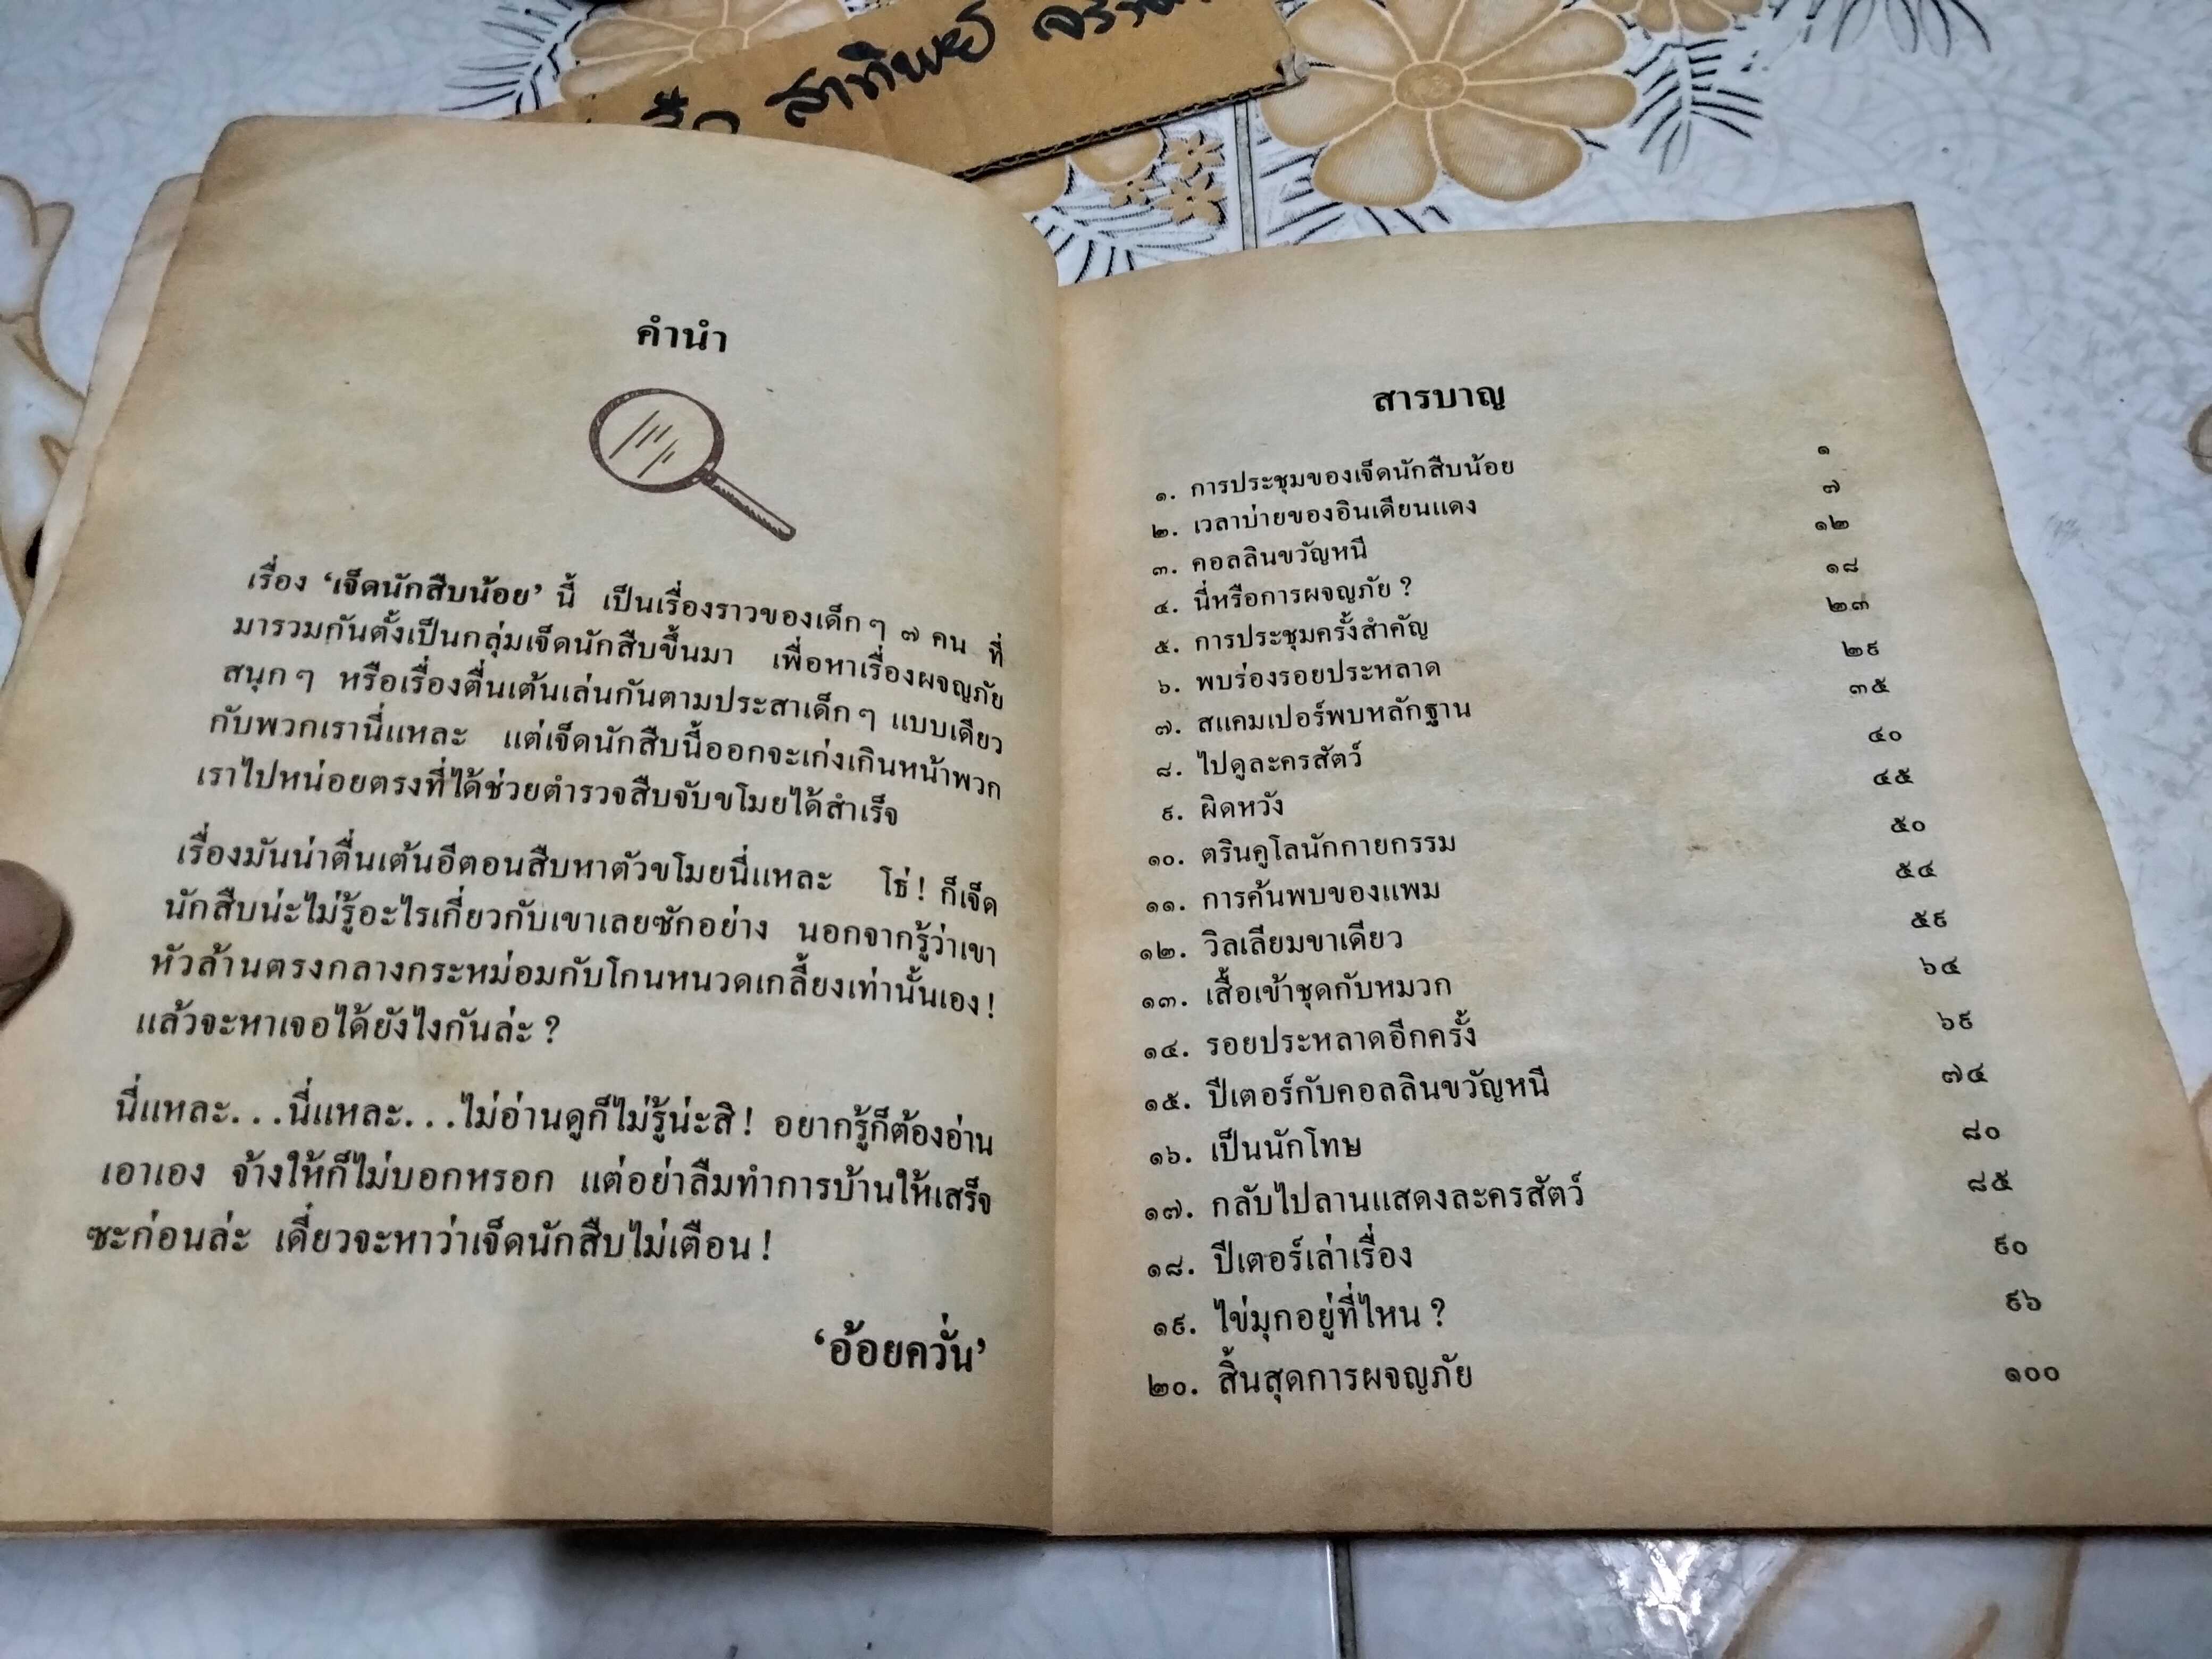 สาทิพย์
คำนำ
เรื่อง ‘เจ็ดนักสืบน้อย’ นี้ เป็นเรื่องราวของเด็กๆ ๗ คน ที่
มารวมกันตั้งเป็นกลุ่มเจ็ดนักสืบขึ้นมา เพื่อหาเรื่องผจญภัย
สนุกๆ หรือเรื่องตื่นเต้นเล่นกันตามประสาเด็กๆ แบบเดียว
กับพวกเรานี่แหละ แต่เจ็ดนักสืบนี้ออกจะเก่งเกินหน้าพวก
เราไปหน่อยตรงที่ได้ช่วยตำรวจสืบจับขโมยได้สำเร็จ
เรื่องมันน่าตื่นเต้นอีตอนสืบหาตัวขโมยนี่แหละ โธ่! ก็เจ็ด
นักสืบน่ะไม่รู้อะไรเกี่ยวกับเขาเลยซักอย่าง นอกจากรู้ว่าเขา
หัวล้านตรงกลางกระหม่อมกับโกนหนวดเกลี้ยงเท่านั้นเอง!
แล้วจะหาเจอได้ยังไงกันล่ะ?
นี่แหละ...นี่แหละ...ไม่อ่านดูก็ไม่รู้น่ะสิ! อยากรู้ก็ต้องอ่าน
เอาเอง จ้างให้ก็ไม่บอกหรอก แต่อย่าลืมทำการบ้านให้เสร็จ
ซะก่อนล่ะ เดี๋ยวจะหาว่าเจ็ดนักสืบไม่เตือน!
‘อ้อยควั่น’
สารบาญ
๑. การประชุมของเจ็ดนักสืบน้อย ๑
๒. เวลาบ่ายของอินเดียนแดง ๗
๓. คอลลินขวัญหนี ๑๒
๔. นี่หรือการผจญภัย? ๑๘
๕. การประชุมครั้งสำคัญ ๒๓
๖. พบร่องรอยประหลาด ๒๙
๗. สแคมเปอร์พบหลักฐาน ๓๕
๘. ไปดูละครสัตว์ ๔๐
๙. ผิดหวัง ๔๕
๑๐. ตรินคูโลนักกายกรรม ๕๐
๑๑. การค้นพบของแพม ๕๔
๑๒. วิลเลียมขาเดียว ๕๙
๑๓. เสื้อเข้าชุดกับหมวก ๖๔
๑๔. รอยประหลาดอีกครั้ง ๖๙
๑๕. ปีเตอร์กับคอลลินขวัญหนี ๗๔
๑๖. เป็นนักโทษ ๘๐
๑๗. กลับไปลานแสดงละครสัตว์ ๘๕
๑๘. ปีเตอร์เล่าเรื่อง ๙๐
๑๙. ไข่มุกอยู่ที่ไหน? ๙๖
๒๐. สิ้นสุดการผจญภัย ๑๐๐